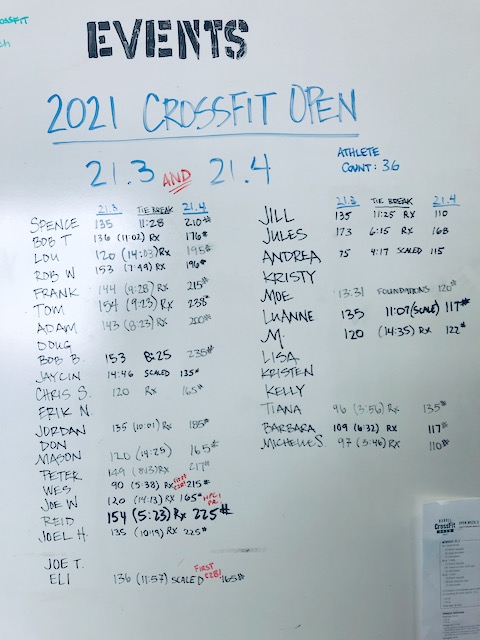 EVENTS
2021 CROSSFIT OPEN
21.3 AND 21.4
ATHLETE
COUNT: 36
21.3 TIE BREAK 21.4
SPENCE 135 11:28 210#
BOB T 136 (11:02) Rx 176#
LOU 120 (14:03) Rx 195#
ROB W 153 (7:49) Rx 196#
FRANK 144 (9:28) Rx 215#
TOM 154 (9:23) Rx 238#
ADAM 143 (8:23) Rx 200#
DOUG
BOB B. 153 8:25 235#
JAYCIN 14:46 SCALED 135#
CHRIS S. 120 Rx 165#
ERIK N.
JORDAN 135 (10:01) Rx 185#
DON
MASON 120 (14:25) 165#
PETER 149 (8:13) Rx 217#
WES 90 (5:38) Rx 215#
JOE W 120 (14:13) Rx 165#
REID 154 (5:23) Rx 225#
JOEL H. 135 (10:19) Rx 225#
JOE T.
FIRST
ELI 136 (11:57) SCALED C2B! 165#
21.3 TIE BREAK 21.4
JILL 135 11:25 Rx 110
JULES 173 6:15 Rx 168
ANDREA 75 4:17 SCALED 115
KRISTY
MOE 13:31 FOUNDATIONS 120#
LUANNE 135 11:07 (SCALE) 117#
M. 120 (14:35) Rx 122#
LISA
KRISTEN
KELLY
TIANA 96 (3:56) Rx 135#
BARBARA 109 (6:32) Rx 117#
MICHELLE S. 97 (3:46) Rx 110#
CrossFit